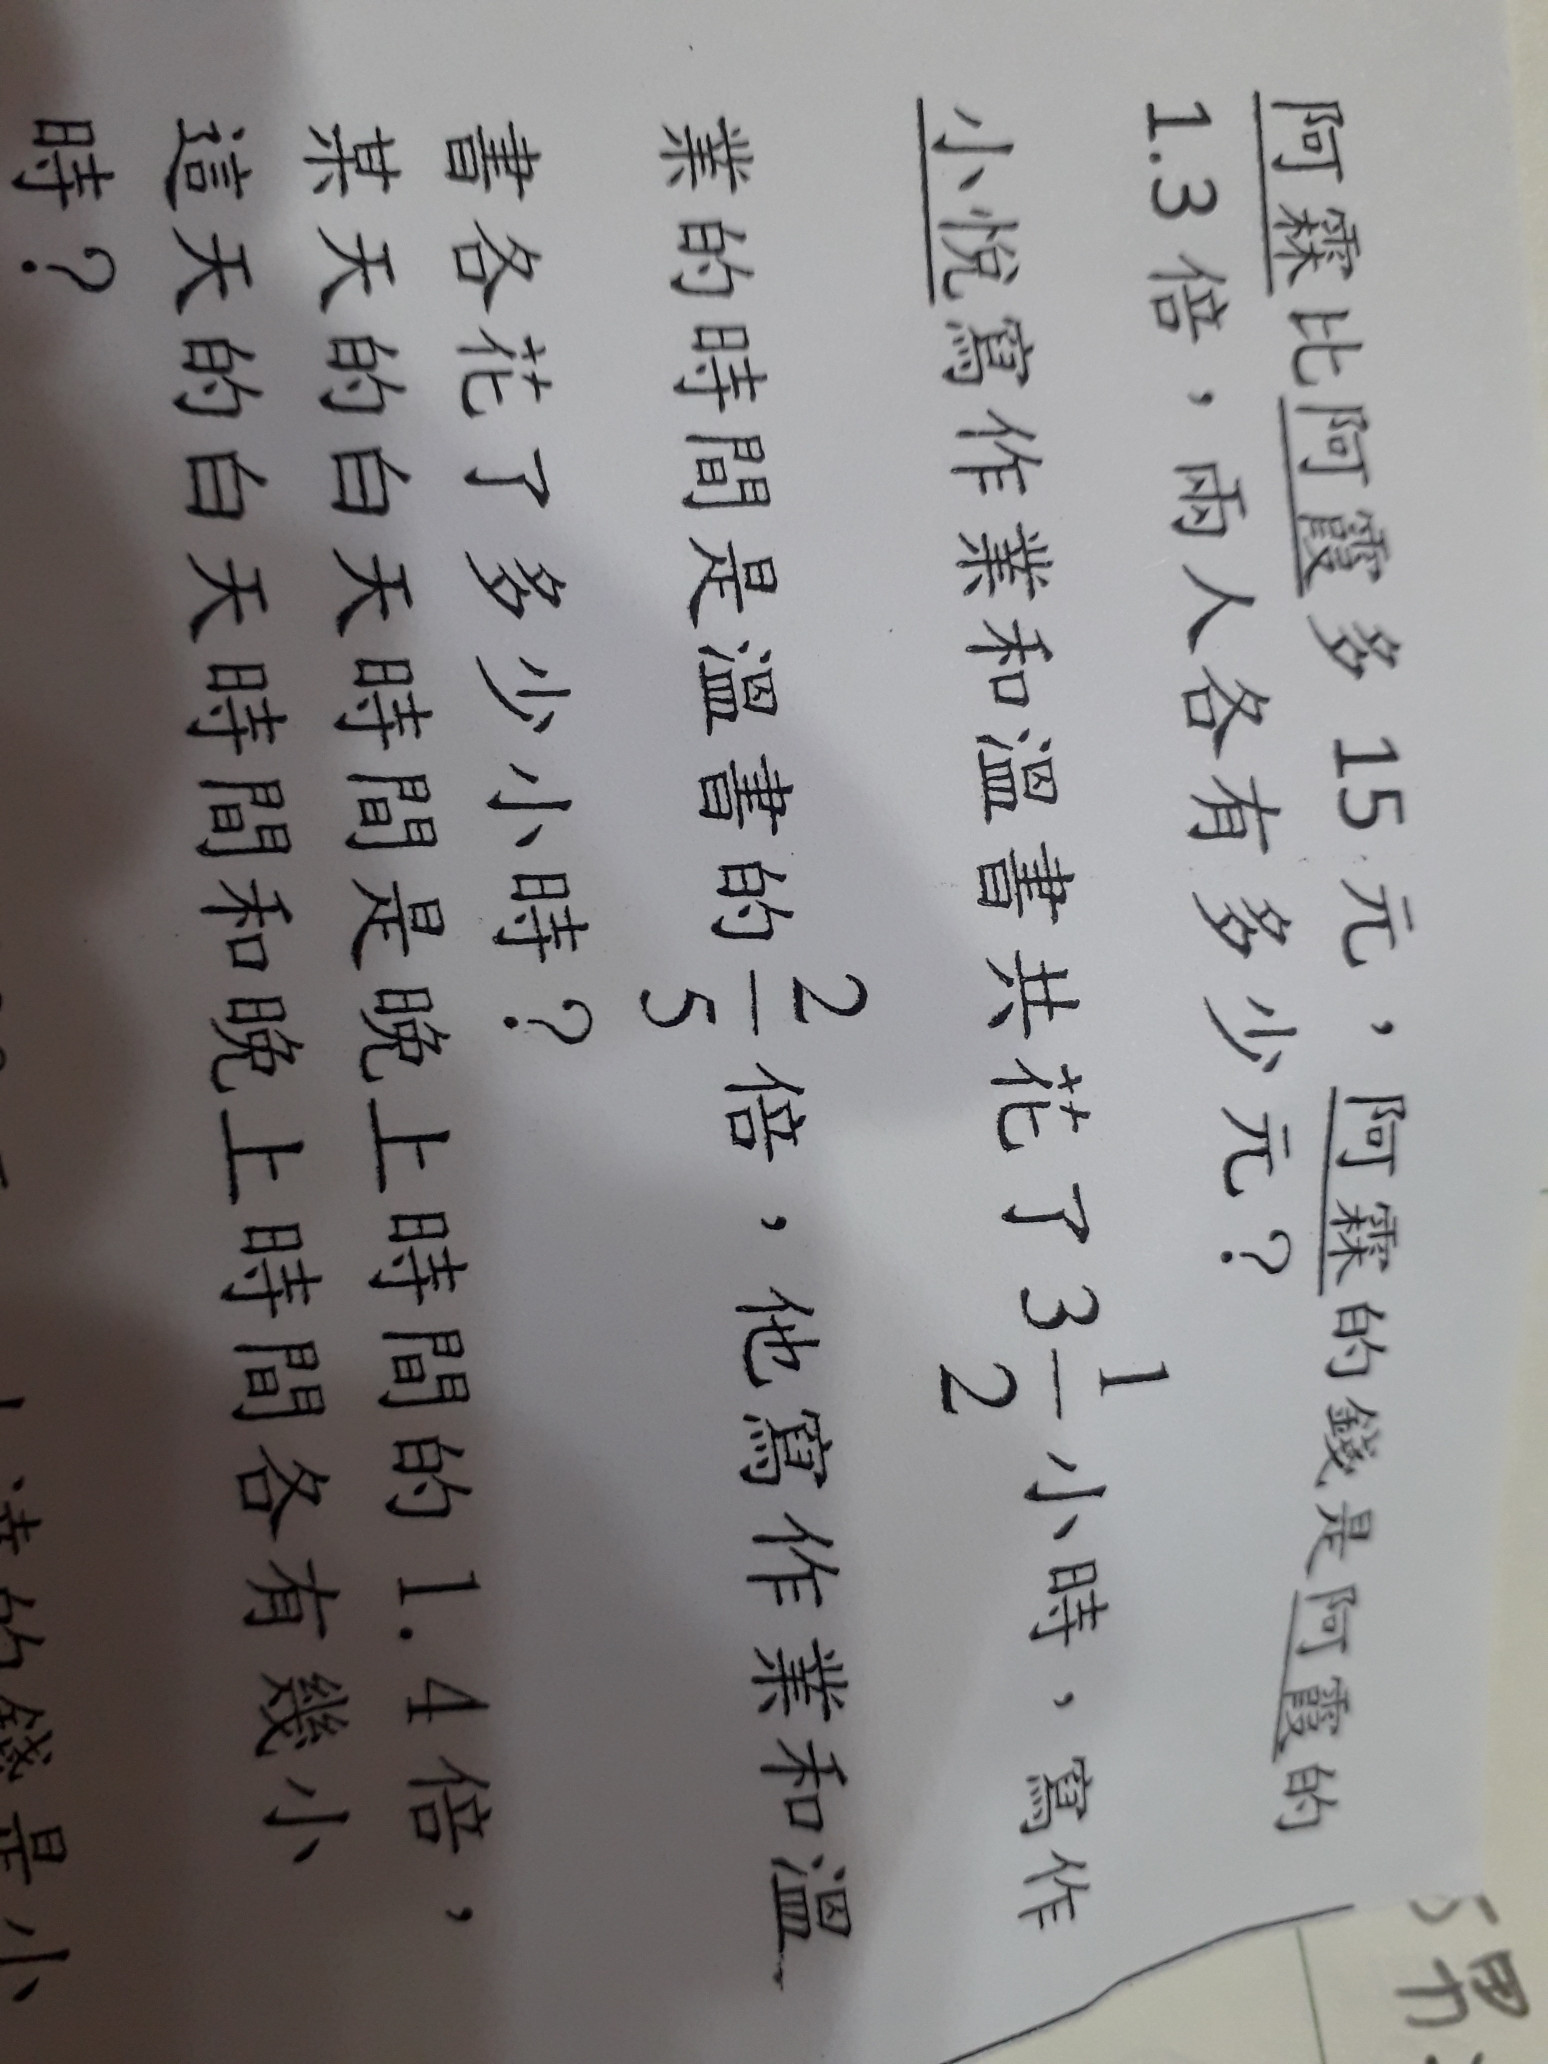 阿霖比阿霞多 15 元，阿霖的錢是阿霞的
1.3 倍，兩人各有多少元？
小悅寫作業和溫書共花了 3 1/2 小時，寫作
業的時間是溫書的 2/5 倍，他寫作業和溫
書各花了多少小時？
某天的白天時間是晚上時間的 1.4 倍，
這天的白天時間和晚上時間各有幾小
時？